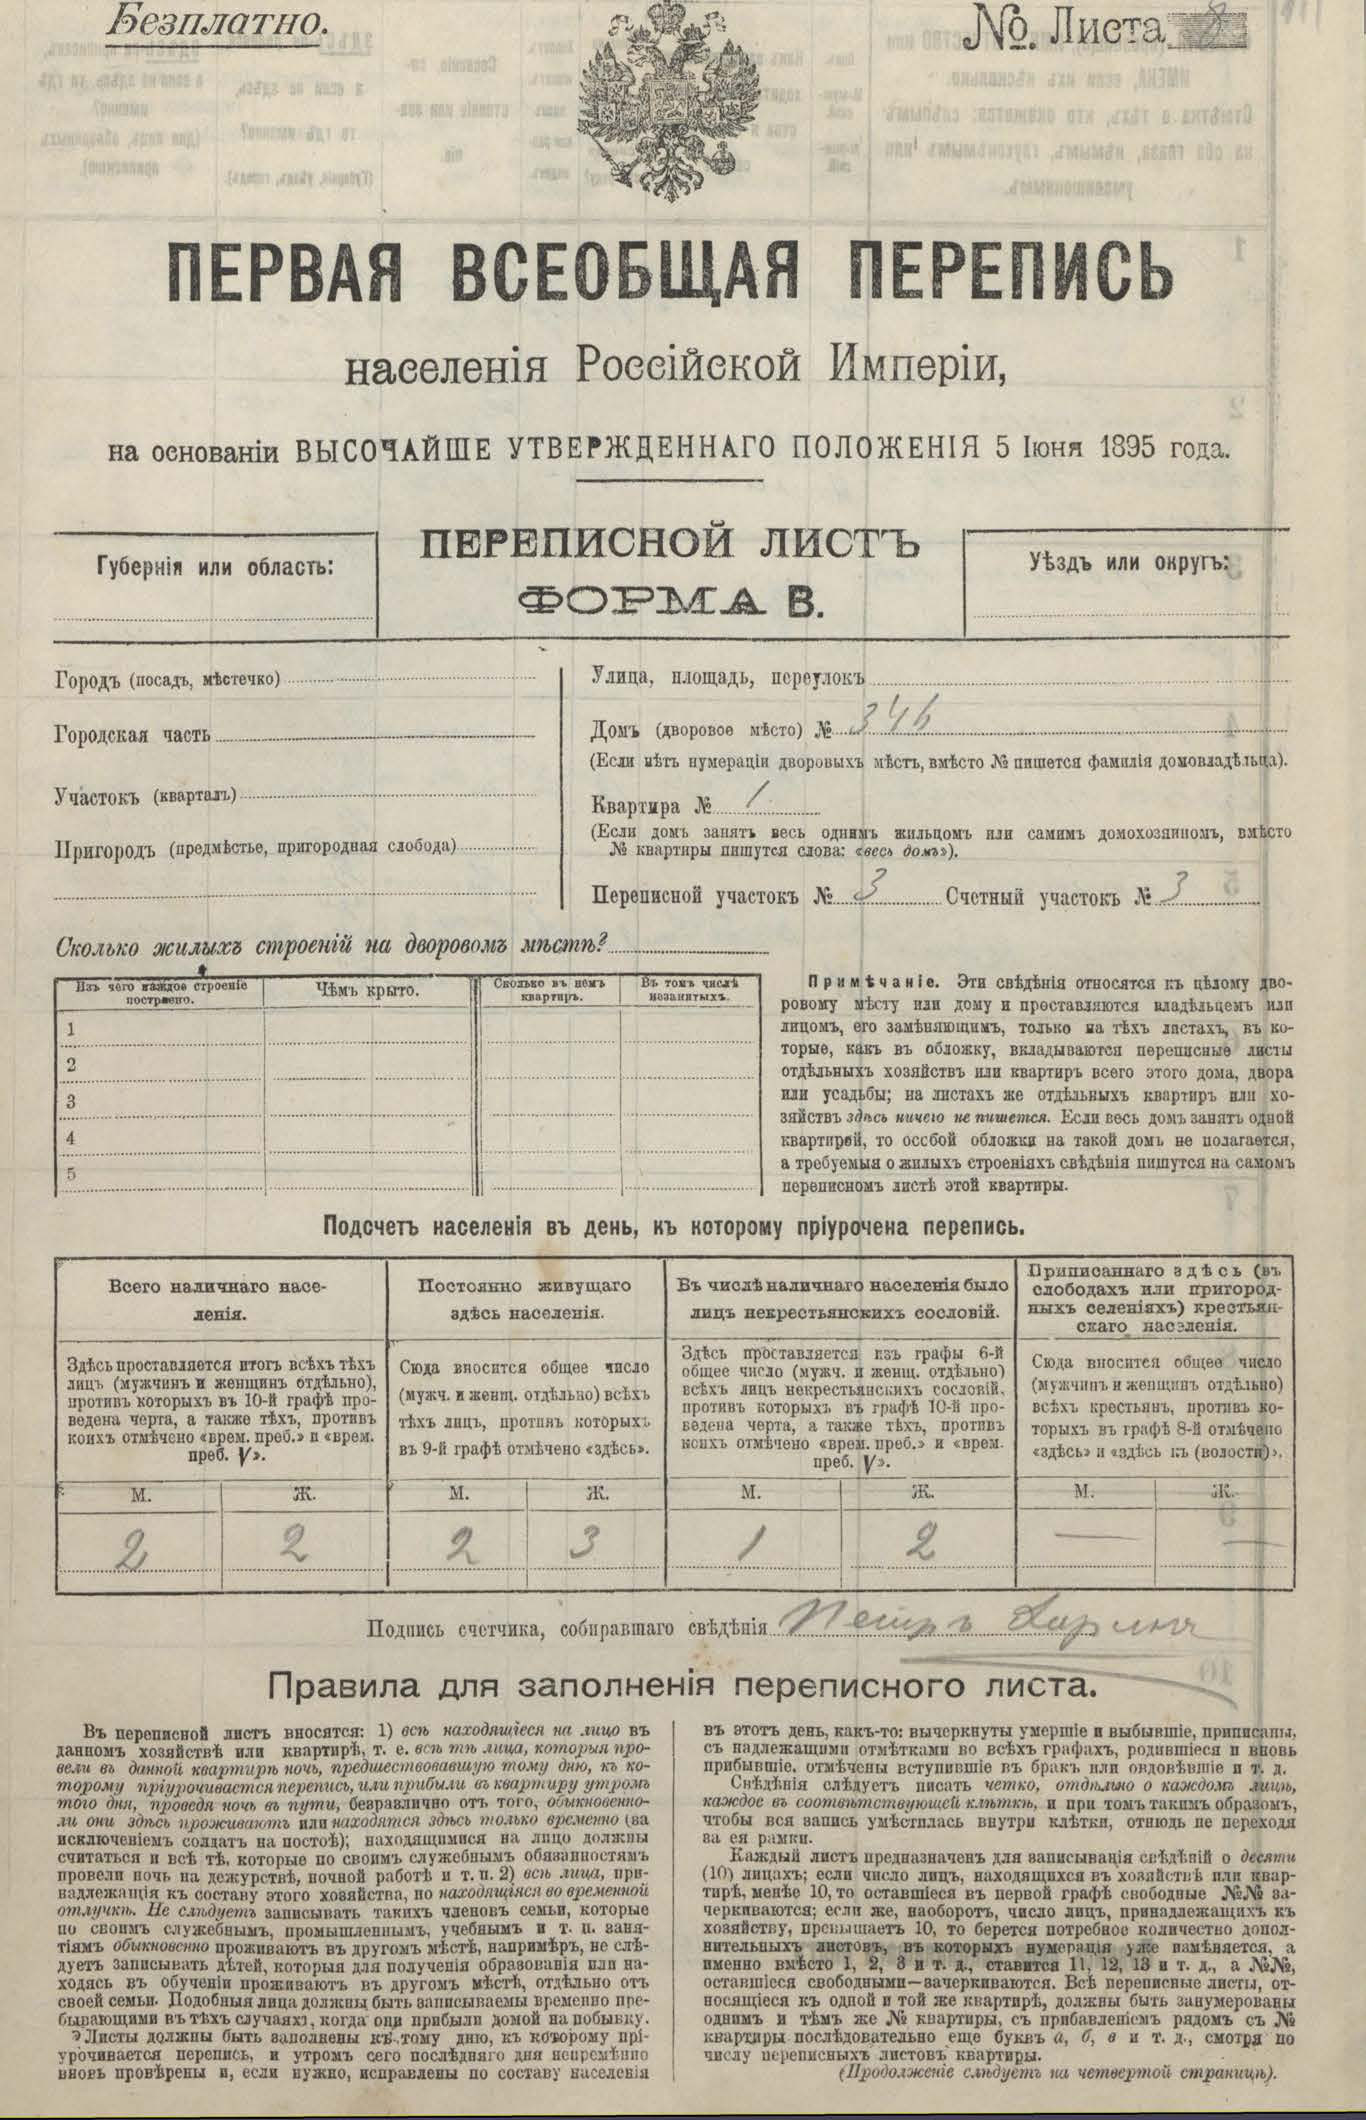 Безплатно.
№. Листа 8
ПЕРВАЯ ВСЕОБЩАЯ ПЕРЕПИСЬ
населенія Россійской Имперіи,
на основаніи ВЫСОЧАЙШЕ УТВЕРЖДЕННАГО ПОЛОЖЕНІЯ 5 Іюня 1895 года.
Губернія или область:
ПЕРЕПИСНОЙ ЛИСТЪ
ФОРМА В.
Уѣздъ или округъ:
Городъ (посадъ, мѣстечко)
Городская часть
Участокъ (кварталъ)
Пригородъ (предмѣстье, пригородная слобода)
Улица, площадь, переулокъ
Домъ (дворовое мѣсто) №
(Если нѣтъ нумераціи дворовыхъ мѣстъ, вмѣсто № пишется фамилія домовладѣльца).
Квартира № 1
(Если домъ занятъ весь однимъ жильцомъ или самимъ домохозяиномъ, вмѣсто
№ квартиры пишутся слова: «весь домъ»).
Переписной участокъ № 3 Счетный участокъ № 3
Сколько жилыхъ строеній на дворовомъ мѣстѣ?
Изъ чего каждое строеніе
построено.
Чѣмъ крыто.
Сколько въ немъ
квартиръ.
Въ томъ числѣ
незанятыхъ.
1
2
3
4
5
Примѣчаніе. Эти свѣдѣнія относятся къ цѣлому дво-
ровому мѣсту или дому и проставляются владѣльцемъ или
лицомъ, его замѣняющимъ, только на тѣхъ листахъ, въ ко-
торые, какъ въ обложку, вкладываются переписные листы
отдѣльныхъ хозяйствъ или квартиръ всего этого дома, двора
или усадьбы; на листахъ же отдѣльныхъ квартиръ или хо-
зяйствъ здѣсь ничего не пишется. Если весь домъ занятъ одной
квартирой, то особой обложки на такой домъ не полагается,
а требуемыя о жилыхъ строеніяхъ свѣдѣнія пишутся на самомъ
переписномъ листѣ этой квартиры.
Подсчетъ населенія въ день, къ которому пріурочена перепись.
Всего наличнаго насе-
ленія.
Здѣсь проставляется итогъ всѣхъ тѣхъ
лицъ (мужчинъ и женщинъ отдѣльно),
противъ которыхъ въ 10-й графѣ про-
ведена черта, а также тѣхъ, противъ
коихъ отмѣчено «врем. преб.» и «врем.
преб. V».
Постоянно живущаго
здѣсь населенія.
Сюда вносится общее число
(мужч. и женщ. отдѣльно) всѣхъ
тѣхъ лицъ, противъ которыхъ
въ 9-й графѣ отмѣчено «здѣсь».
Въ числѣ наличнаго населенія было
лицъ некрестьянскихъ сословій.
Здѣсь проставляется изъ графы 6-й
общее число (мужч. и женщ. отдѣльно)
всѣхъ лицъ некрестьянскихъ сословій,
противъ которыхъ въ графѣ 10-й про-
ведена черта, а также тѣхъ, противъ
коихъ отмѣчено «врем. преб.» и «врем.
преб. V».
Приписаннаго здѣсь (въ
слободахъ или пригород-
ныхъ селеніяхъ) крестьян-
скаго населенія.
Сюда вносится общее число
(мужчинъ и женщинъ отдѣльно)
всѣхъ крестьянъ, противъ ко-
торыхъ въ графѣ 8-й отмѣчено
«здѣсь» и «здѣсь къ (волости)».
М. Ж. М. Ж. М. Ж. М. Ж.
2 2 2 3 1 2 — —
Подпись счетчика, собиравшаго свѣдѣнія Петръ
Правила для заполненія переписного листа.
Въ переписной листъ вносятся: 1) всѣ находящіеся на лицо въ
данномъ хозяйствѣ или квартирѣ, т. е. всѣ тѣ лица, которыя про-
вели въ данной квартирѣ ночь, предшествовавшую тому дню, къ ко-
торому пріурочивается перепись, или прибыли въ квартиру утромъ
того дня, проведя ночь въ пути, безразлично отъ того, обыкновенно-
ли они здѣсь проживаютъ или находятся здѣсь только временно (за
исключеніемъ солдатъ на постоѣ); находящимися на лицо должны
считаться и всѣ тѣ, которые по своимъ служебнымъ обязанностямъ
провели ночь на дежурствѣ, ночной работѣ и т. п. 2) всѣ лица, при-
надлежащія къ составу этого хозяйства, но находящіяся во временной
отлучкѣ. Не слѣдуетъ записывать такихъ членовъ семьи, которые
по своимъ служебнымъ, промышленнымъ, учебнымъ и т. п. заня-
тіямъ обыкновенно проживаютъ въ другомъ мѣстѣ, напримѣръ, не слѣ-
дуетъ записывать дѣтей, которыя для полученія образованія или на-
ходясь въ обученіи проживаютъ въ другомъ мѣстѣ, отдѣльно отъ
своей семьи. Подобныя лица должны быть записываемы временно пре-
бывающими въ тѣхъ случаяхъ, когда они прибыли домой на побывку.
Листы должны быть заполнены къ тому дню, къ которому прі-
урочивается перепись, и утромъ сего послѣдняго дня непремѣнно
вновь провѣрены и, если нужно, исправлены по составу населенія
въ этотъ день, какъ-то: вычеркнуты умершіе и выбывшіе, приписаны,
съ надлежащими отмѣтками во всѣхъ графахъ, родившіеся и вновь
прибывшіе, отмѣчены вступившіе въ бракъ или овдовѣвшіе и т. д.
Свѣдѣнія слѣдуетъ писать четко, отдѣльно о каждомъ лицѣ,
каждое въ соотвѣтствующей клѣткѣ, и при томъ такимъ образомъ,
чтобы вся запись умѣстилась внутри клѣтки, отнюдь не переходя
за ея рамки.
Каждый листъ предназначенъ для записыванія свѣдѣній о десяти
(10) лицахъ; если число лицъ, находящихся въ хозяйствѣ или квар-
тирѣ, менѣе 10, то оставшіеся въ первой графѣ свободные №№ за-
черкиваются; если же, наоборотъ, число лицъ, принадлежащихъ къ
хозяйству, превышаетъ 10, то берется потребное количество допол-
нительныхъ листовъ, въ которыхъ нумерація уже измѣняется, а
именно вмѣсто 1, 2, 3 и т. д., ставится 11, 12, 13 и т. д., а №№,
оставшіеся свободными—зачеркиваются. Всѣ переписные листы, от-
носящіеся къ одной и той же квартирѣ, должны быть занумерованы
однимъ и тѣмъ же № квартиры, съ прибавленіемъ рядомъ съ №
квартиры послѣдовательно еще буквъ а, б, в и т. д., смотря по
числу переписныхъ листовъ квартиры.
(Продолженіе слѣдуетъ на четвертой страницѣ).